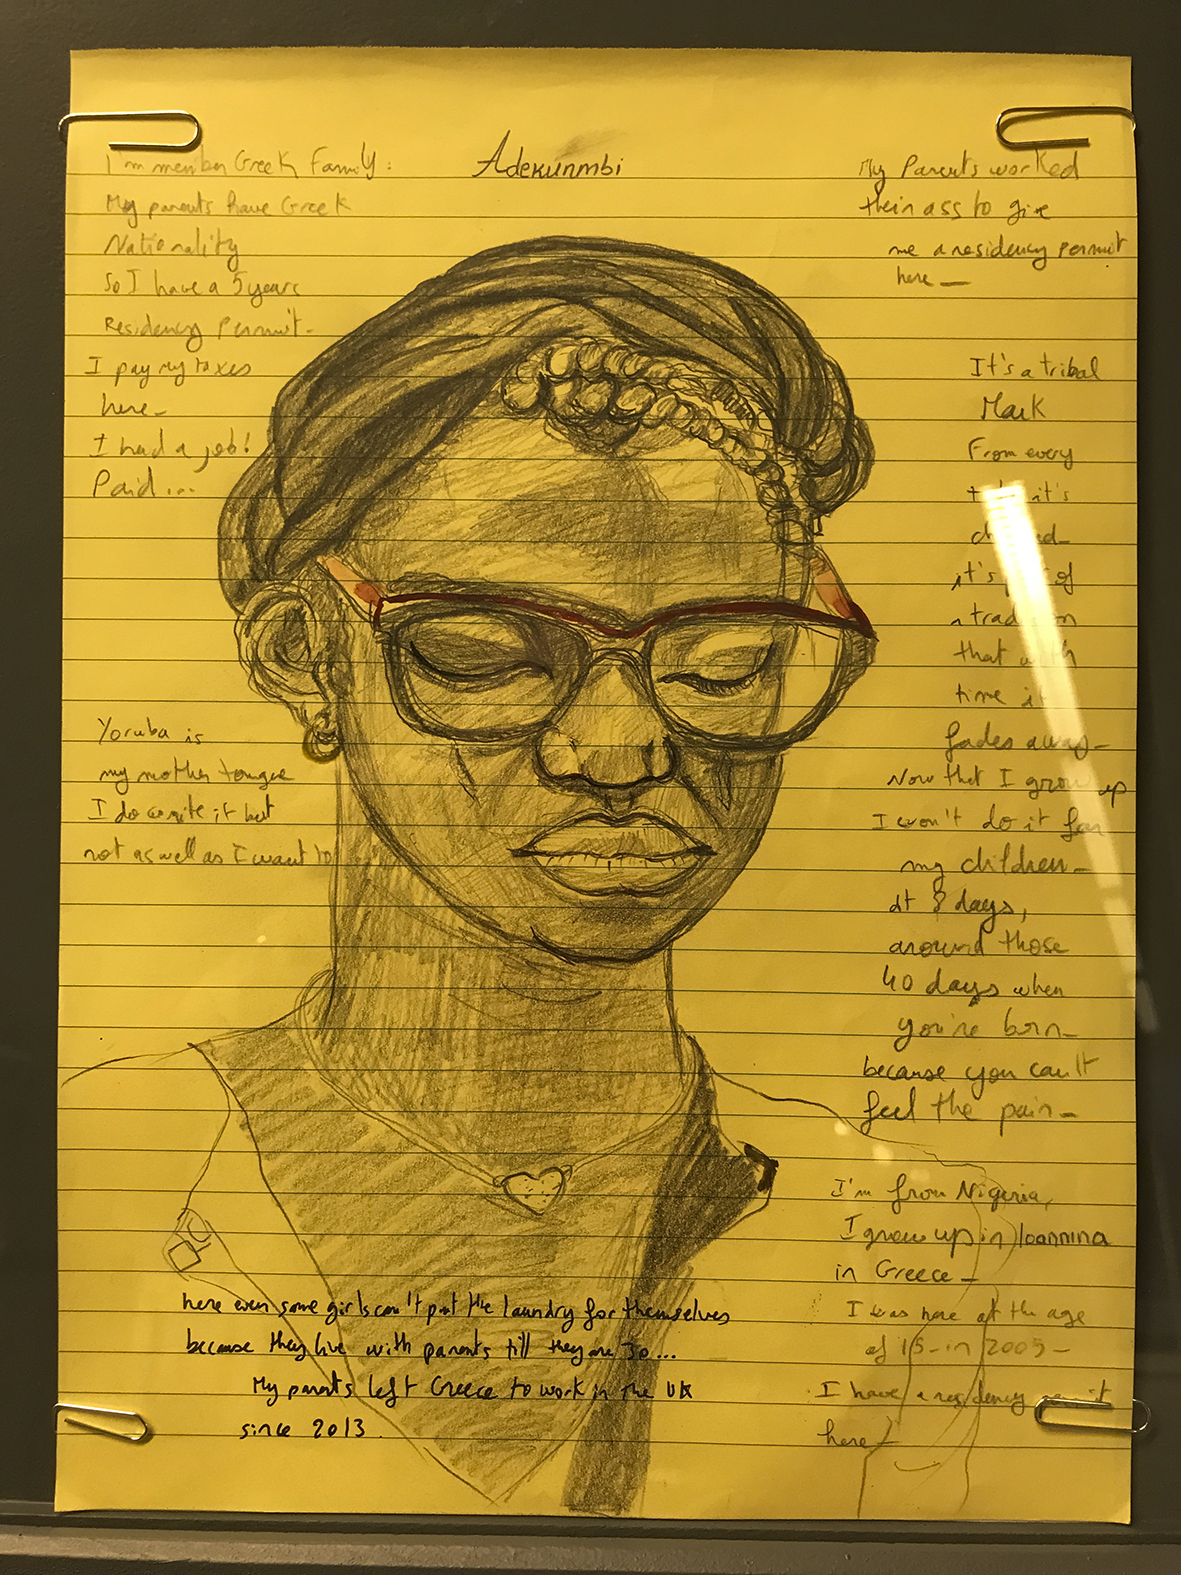 Adekunmbi
I'm member Greek Family:
My parents have Greek
Nationality
So I have a 5 years
Residency Permit-
I pay my taxes
here-
I had a job!
Paid...
Yoruba is
my mother tongue
I do write it but
not as well as I want to
My Parents worked
their ass to give
me a residency permit
here-
It's a tribal
Mark
From every
it's
it's of
that with
time it
fades away-
Now that I grow up
I won't do it for
my children-
At 8 days,
around those
40 days when
you're born-
because you can't
feel the pain-
I'm from Nigeria,
I grew up in Ioannina
in Greece-
I was here at the age
of 15-in 2005-
I have a residency permit
here-
here even some girls can't put the laundry for themselves
because they live with parents till they are 30...
My parents left Greece to work in the UK
since 2013.